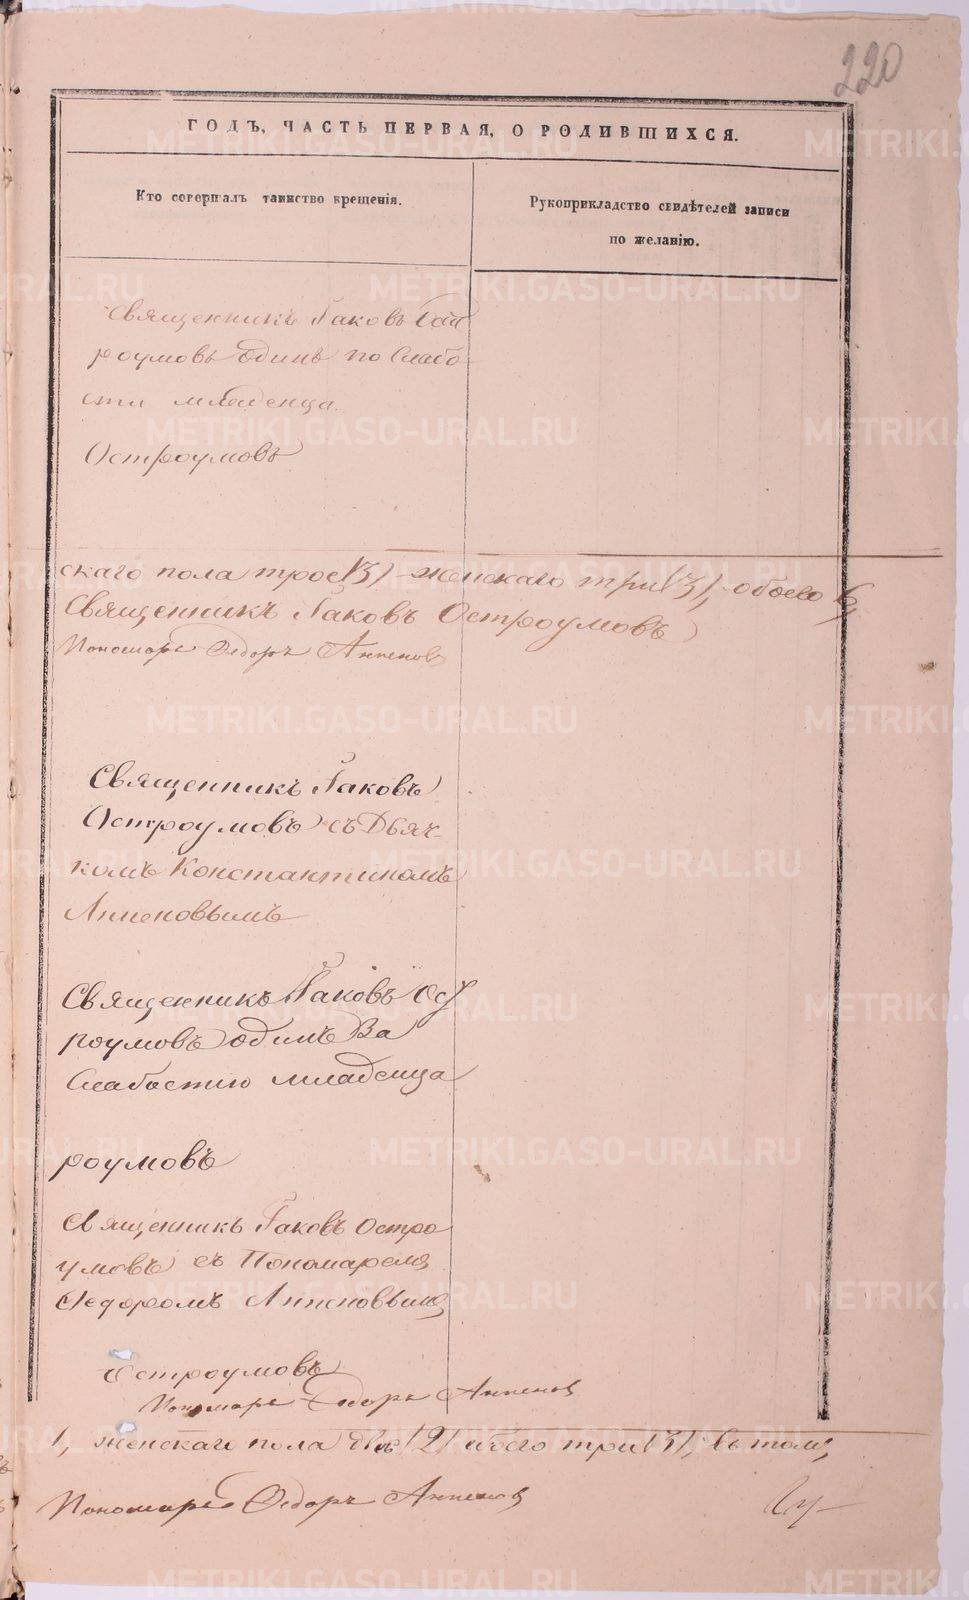 220
ГОДЪ, ЧАСТЬ ПЕРВАЯ, О РОДИВШИХСЯ.
Кто совершалъ таинство крещенія.
Рукоприкладство свидѣтелей записи
по желанію.
Священникъ Іаковъ Ост
роумовъ одинъ по слабо
сти младенца.
Остроумовъ
скаго пола трое (3) женскаго три (3), обоего 6,
Священникъ Іаковъ Остроумовъ
Пономарь Ѳедоръ Анненовъ
Священникъ Іаковъ
Остроумовъ съ Дьяч-
комъ Константиномъ
Анненовымъ
Священникъ Іаковъ Ост
роумовъ одинъ за
слабостію младенца
роумовъ
Священникъ Іаковъ Остро
умовъ съ Пономаремъ
Ѳедоромъ Анненовымъ
Остроумовъ
Пономарь Ѳедоръ Анненовъ
1, женскаго пола двѣ (2) обоего три (3), въ томъ,
Пономарь Ѳедоръ Анненовъ
METRIKI.GASO-URAL.RU